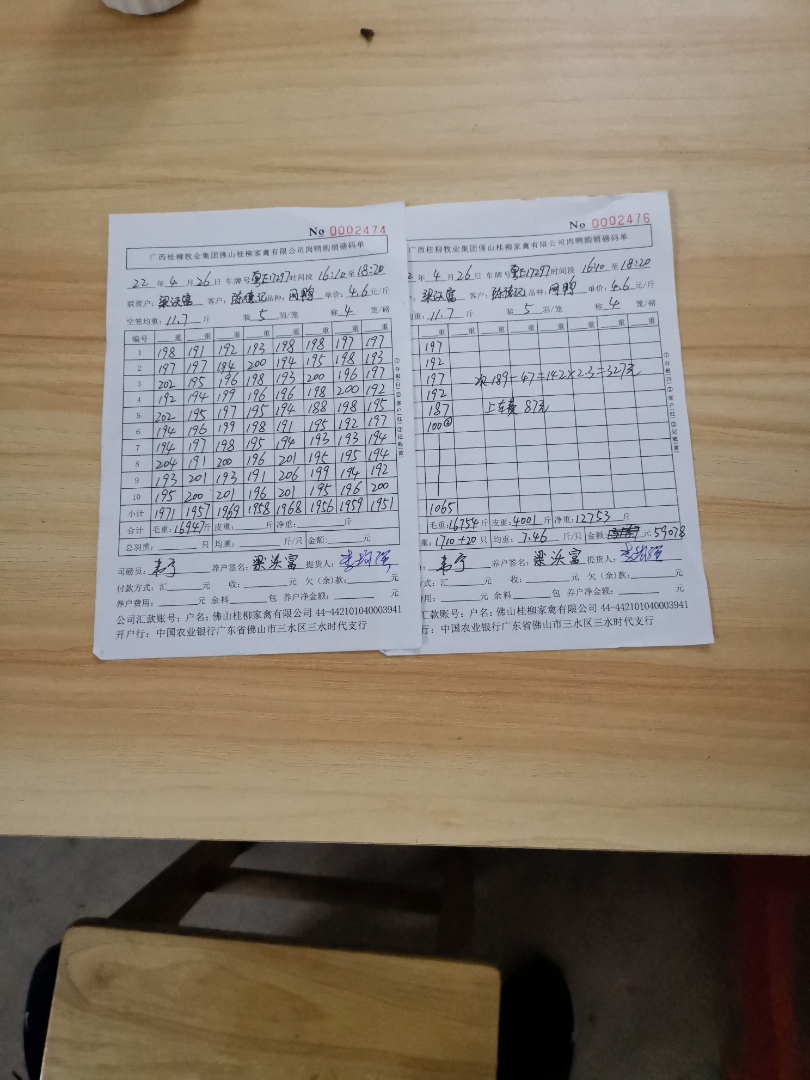 No 0002474
广西桂柳牧业集团佛山桂柳家禽有限公司肉鸭购销磅码单
22 年 4 月 26 日 车牌号 粤E17297 时间段 16:10 至 18:20
联营户: 梁沃富 客户: 品种: 单价: 4.6 元/斤
空笼均重: 11.7 斤 装 5 羽/笼 称 4 笼/磅
编号 重 重 重 重 重 重 重 重
1 198 191 192 193 198 198 197 197
2 197 197 184 200 194 195 198 193
3 202 195 196 198 193 200 196 197
4 192 194 199 196 196 198 200 192
5 202 195 197 195 194 188 198 195
6 194 196 199 198 191 195 192 197
7 194 197 198 195 194 193 193 194
8 204 191 200 196 201 195 195 194
9 193 201 193 191 206 199 194 192
10 195 200 201 196 201 195 196 200
小计 1971 1957 1969 1958 1968 1956 1959 1951
合计 毛重: 斤 皮重: 斤 净重: 斤
总羽重: 只 均重: 斤/只 金额: 元
司磅员: 韦宁 养户签名: 梁沃富 提货人:
付款方式: 汇 元 收: 元 欠(余)款: 元
养户费用: 元 余料 包 养户净金额: 元
公司汇款账号: 户名: 佛山桂柳家禽有限公司 44-442101040003941
开户行: 中国农业银行广东省佛山市三水区三水时代支行
No 0002476
广西桂柳牧业集团佛山桂柳家禽有限公司肉鸭购销磅码单
2 年 4 月 26 日 车牌号 粤E17297 时间段 16:10 至 18:20
: 梁沃富 客户: 品种: 单价: 4.6 元/斤
均重: 11.7 斤 装 5 羽/笼 称 4 笼/磅
重 重 重 重 重 重 重 重
197
192
197 次189-47=142×2.3=327元
192
187 上车费 87元
100
1065
毛重: 16754 斤 皮重: 4001 斤 净重: 12753 斤
重: 1710+20 只 均重: 7.46 斤/只 金额: 元 59078
: 韦宁 养户签名: 梁沃富 提货人:
式: 汇 元 收: 元 欠(余)款: 元
用: 元 余料 包 养户净金额: 元
汇款账号: 户名: 佛山桂柳家禽有限公司 44-442101040003941
行: 中国农业银行广东省佛山市三水区三水时代支行